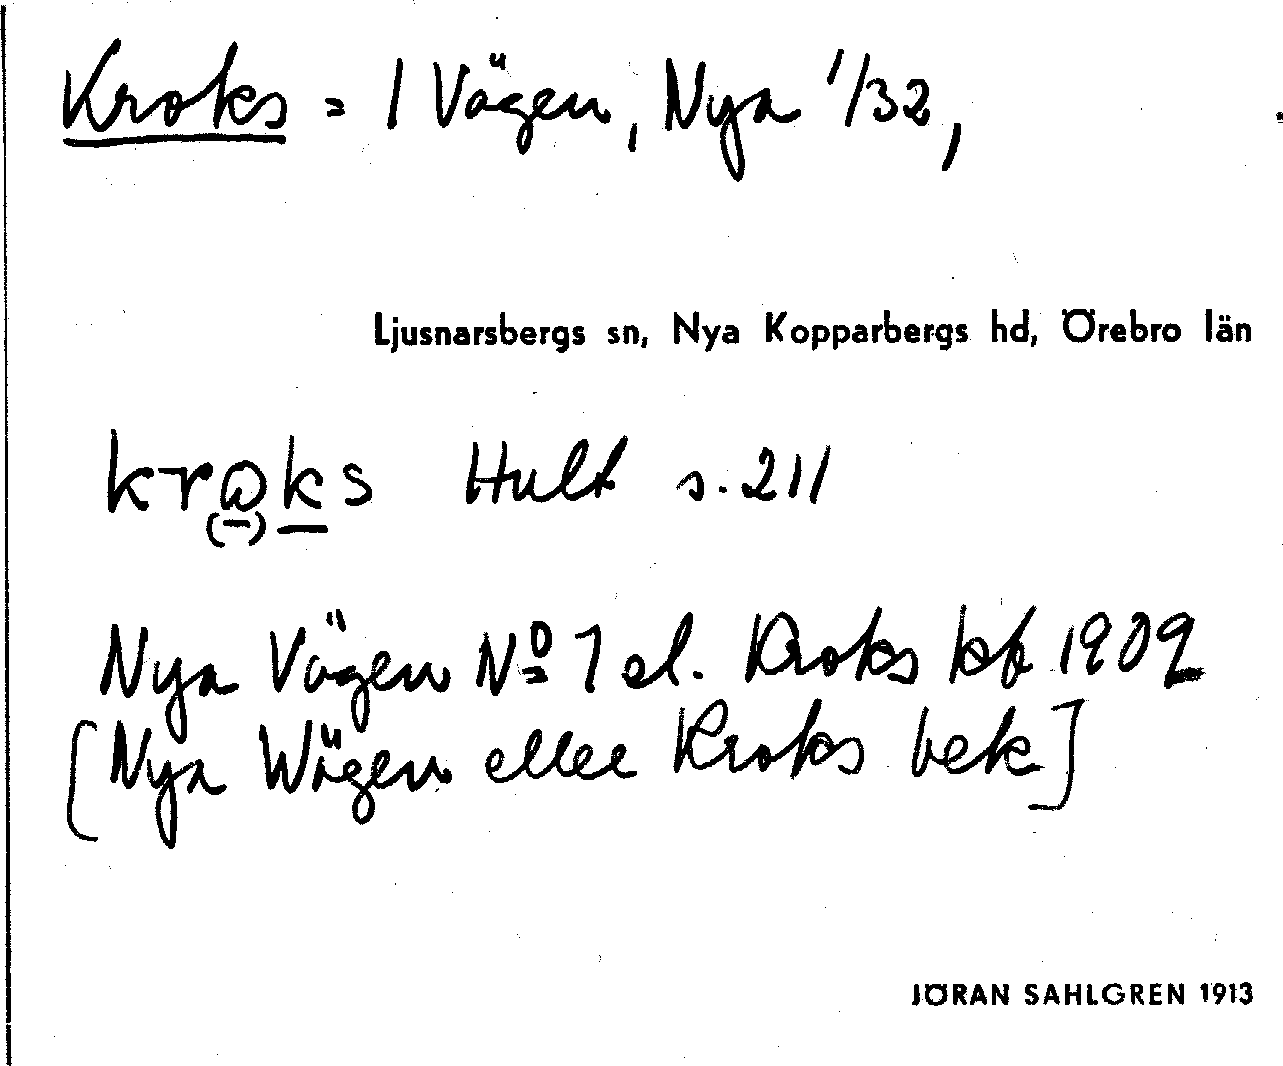 Kroks = / Vägen, Nya 1/32,
Ljusnarsbergs sn, Nya Kopparbergs hd, Örebro län
kroks Hult s. 211
(–)
Nya Vägen No 1 el. Kroks kb 1909
[Nya Wägen eller Kroks bek]
JÖRAN SAHLGREN 1913